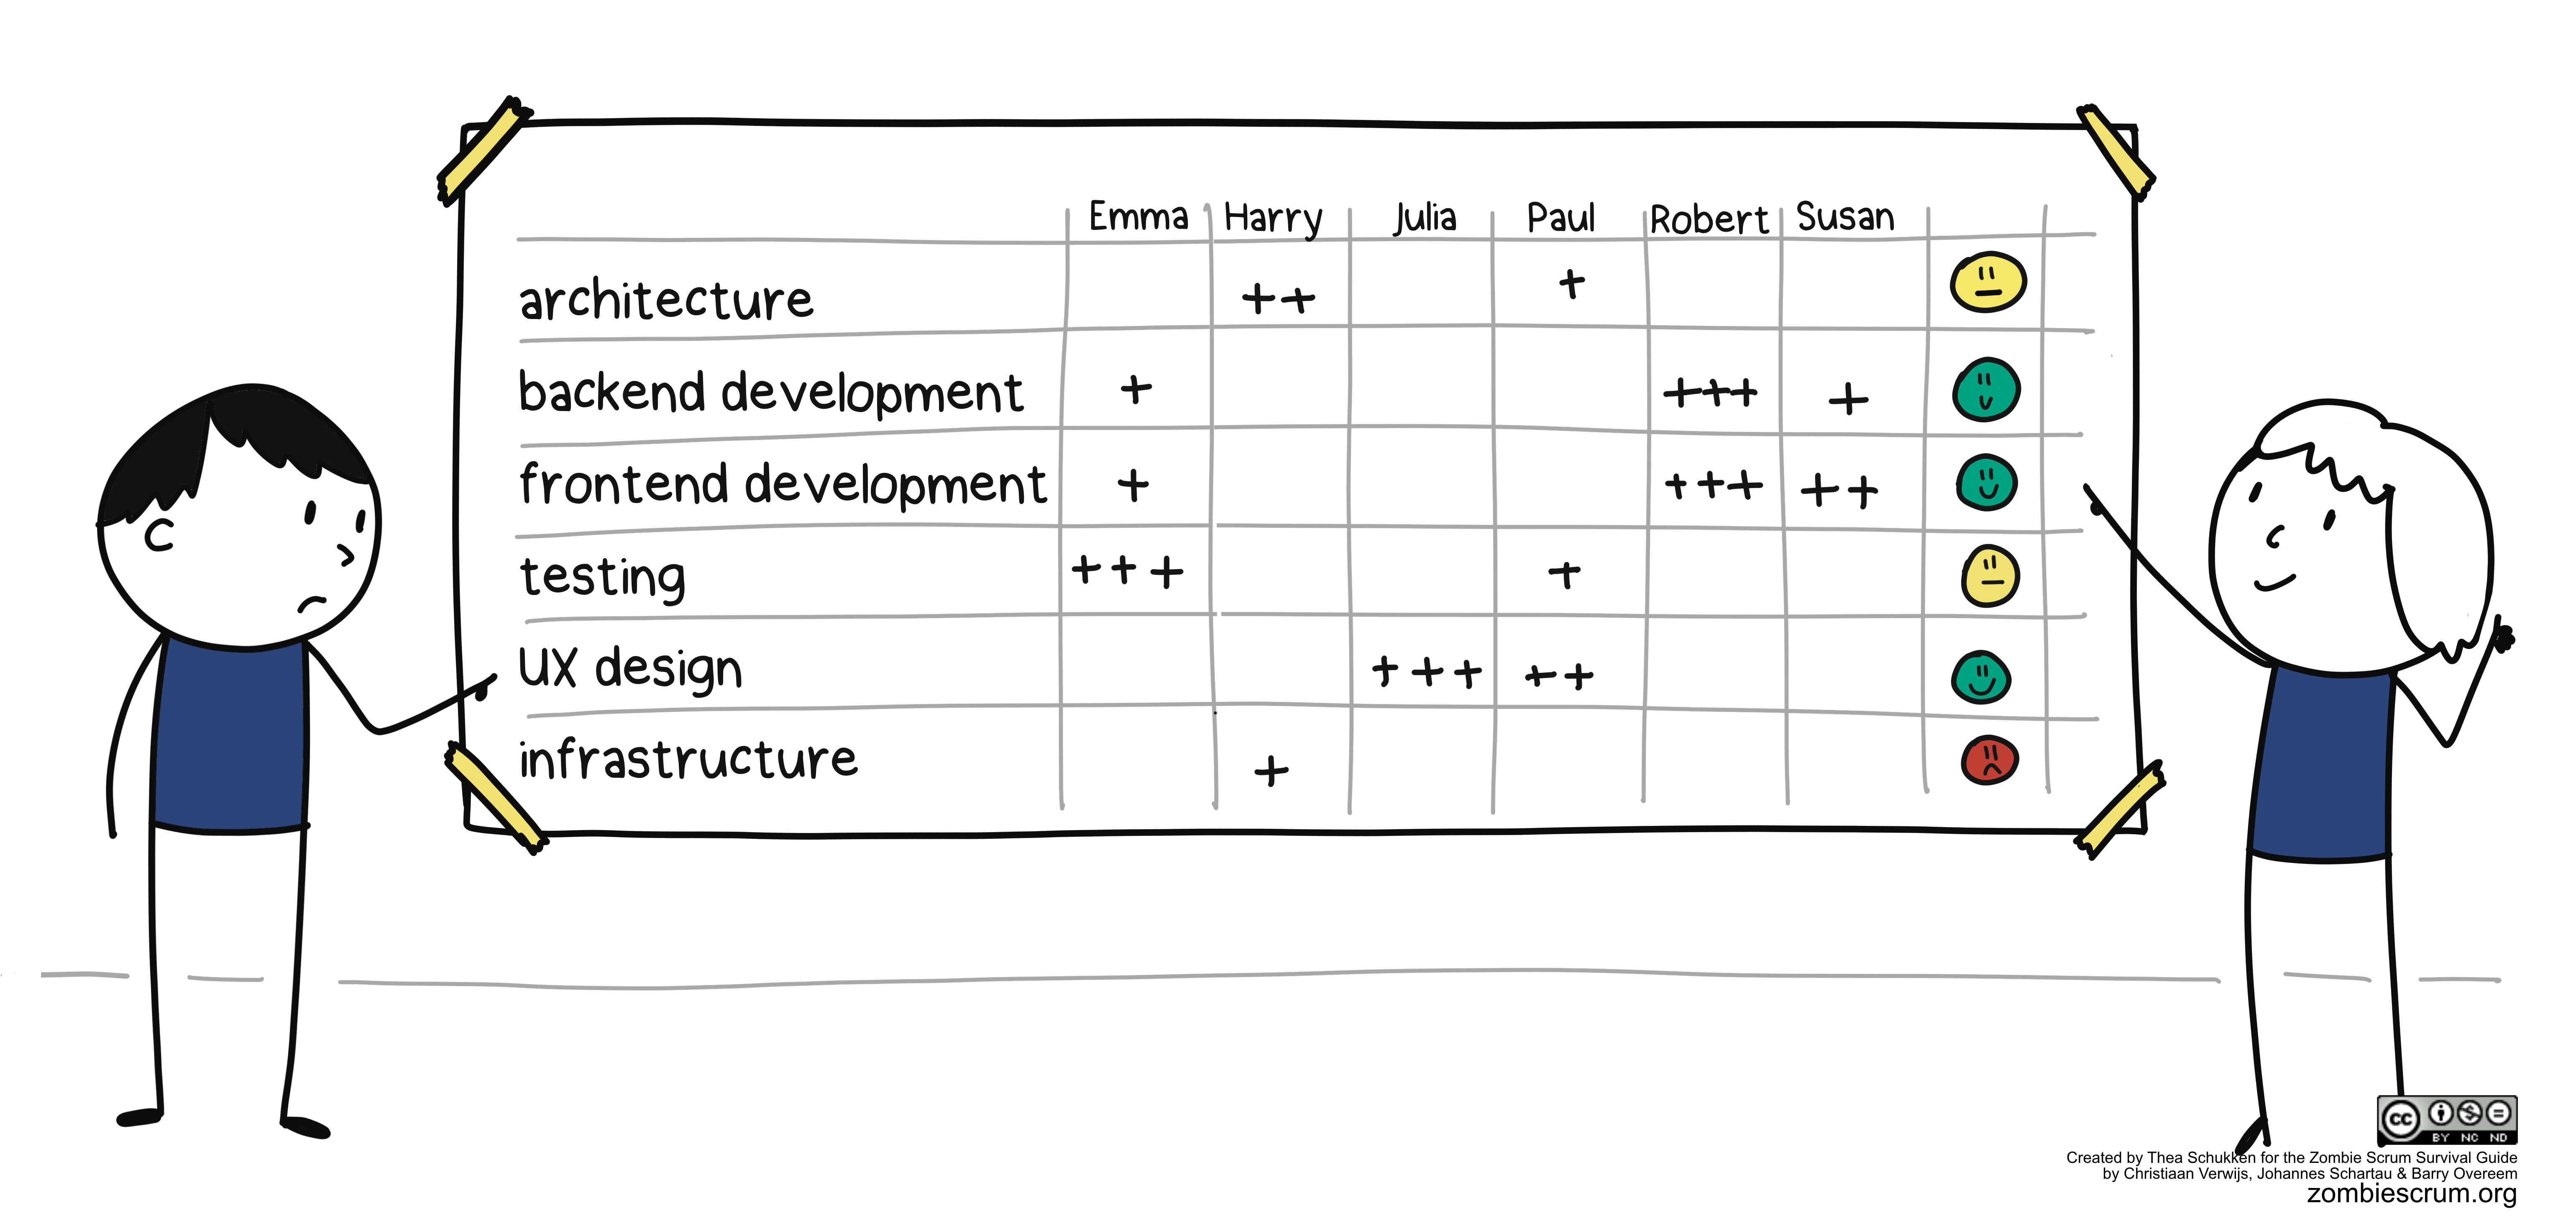 Emma Harry Julia Paul Robert Susan
architecture ++ +
backend development + +++ +
frontend development + +++ ++
testing +++ +
UX design +++ ++
infrastructure +
cc BY NC ND
Created by Thea Schukken for the Zombie Scrum Survival Guide
by Christiaan Verwijs, Johannes Schartau & Barry Overeem
zombiescrum.org